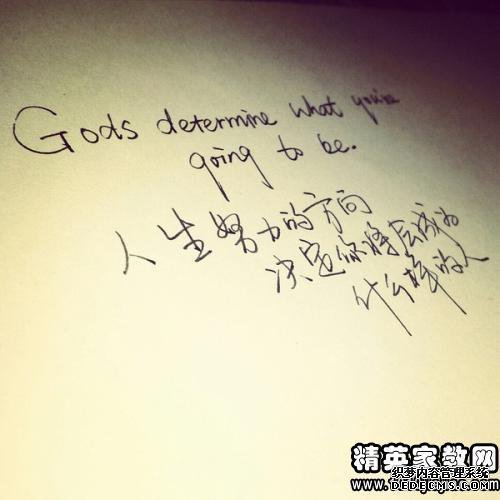 Gods determine what you're
going to be.
人生努力的方向
决定你将会成为
什么样的人
精英家教网
织梦内容管理系统
DEDECMS.COM